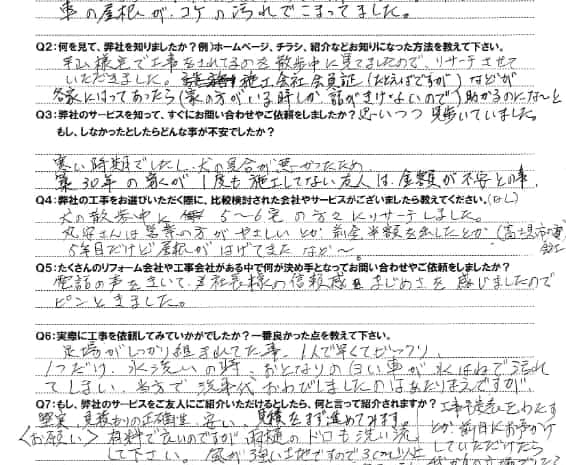 車の屋根が、コケの汚れでこまってました。
Q2:何を見て、弊社を知りましたか？例)ホームページ、チラシ、紹介などお知りになった方法を教えて下さい。
平山様宅で工事をされてるのを散歩中に見てましたので、リサーチさせて
いただきました。施工会社会員証(たとえばですが)などが
各家にはってあったら(家の方がいる時しか話がきけないので)助かるのにな〜と
Q3:弊社のサービスを知って、すぐにお問い合わせやご依頼をしましたか？思いつつ見歩いていました。
もし、しなかったとしたらどんな事が不安でしたか？
寒い時期でしたし、犬の具合が悪かったため、
築30年の家が1度も施工してない友人は、金額が不安との事、
Q4:弊社の工事をお選びいただく際に、比較検討された会社やサービスがございましたら教えてください。(なし)
犬の散歩中に 5〜6宅の方々にリサーチしました。
さんは営業の方がやさしいとか、前金半額を出したとか(高場市
5年目だけど屋根がはげてきたなど〜。
Q5:たくさんのリフォーム会社や工事会社がある中で何が決め手となってお問い合わせやご依頼をしましたか？
電話の声をきいて、社長様の信頼感、まじめさを感じましたので
ピンときました。
Q6:実際に工事を依頼してみていかがでしたか？一番良かった点を教えて下さい。
足場がしっかり組まれてた事、1人で早くてビックリ、
1つだけ、水洗いの時、おとなりの白い車が水はねで汚れ
てしまい、当方で洗車代おわびしましたのはあたりまえですが
Q7:もし、弊社のサービスをご友人にご紹介いただけるとしたら、何と言って紹介されますか？
堅実、見積もりの正確さ、安い、見積をまず進めてみます。
工事をわたす
とか前日にお声かけ
していただけたら
<お願い>有料で良いのですが雨樋のドロも洗い流
して下さい。風が強い土地ですので3cm以上